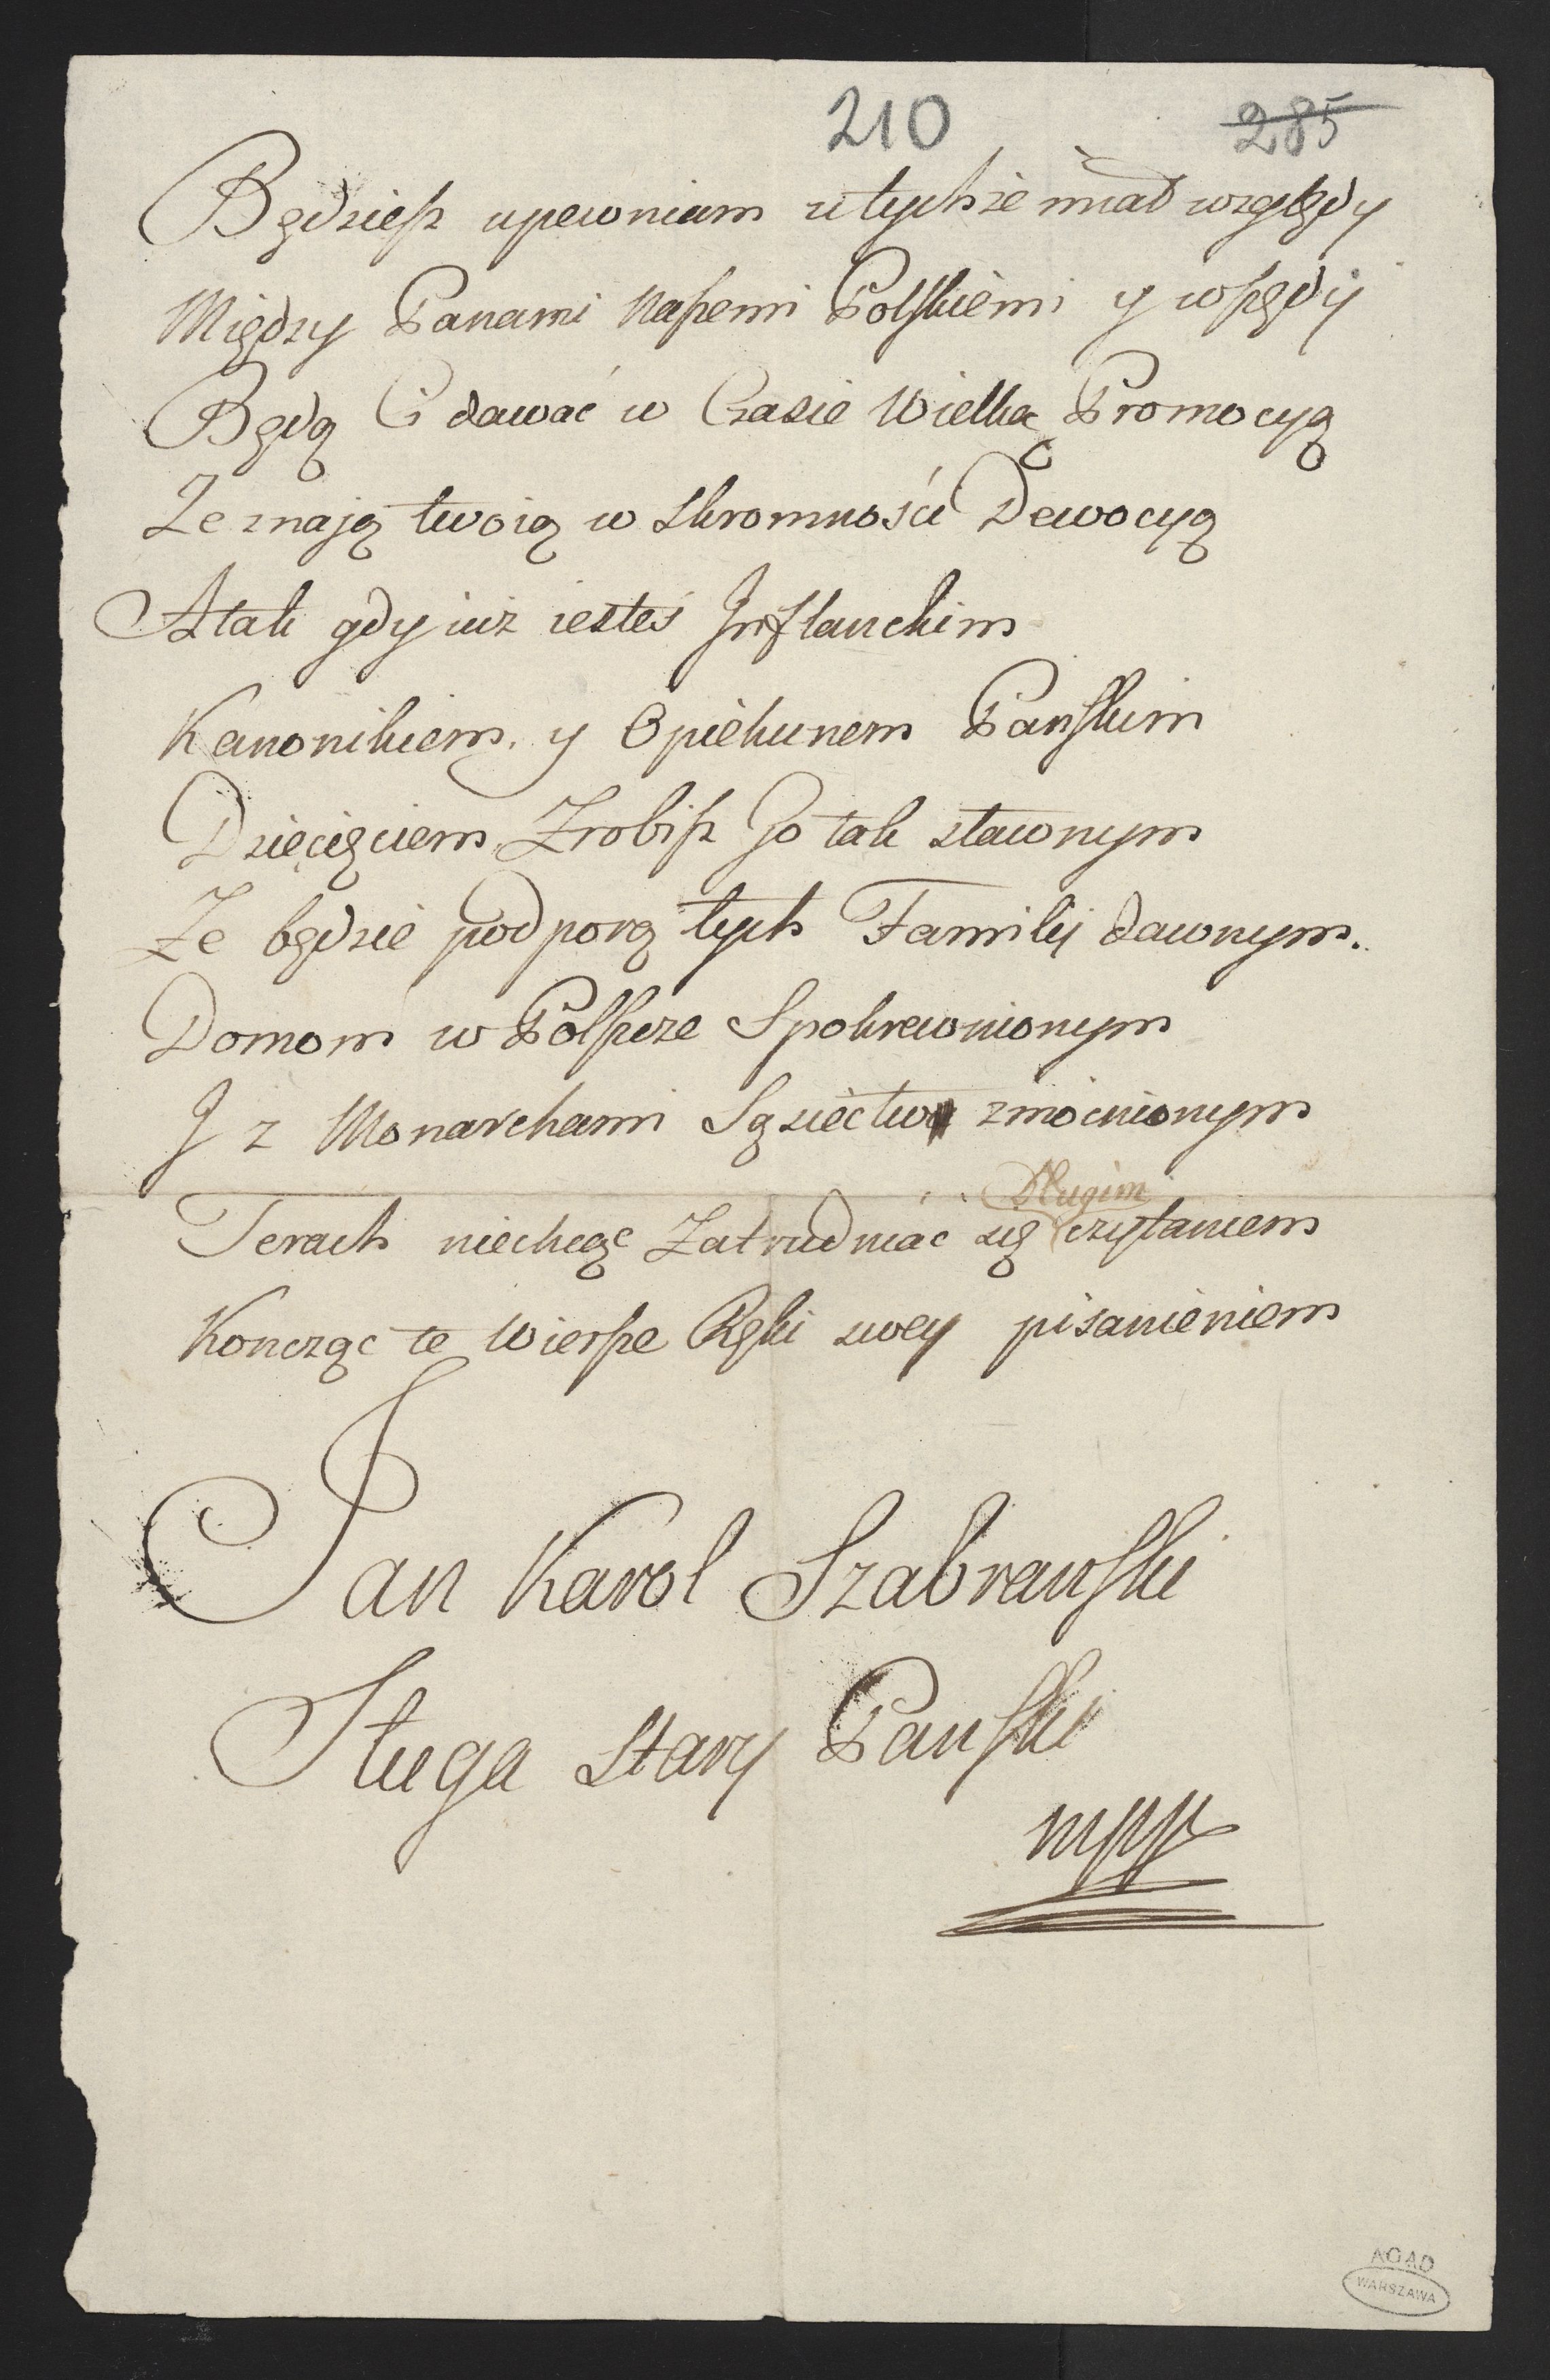 210 285
Będziesz upewniam u tychże miał względy
Między Panami Naszemi Polskiemi y wszędy
Będą Ci dawać w Czasie Wielką Promocyą
Ze znają twoią w skromności Dewocyą
A tak gdy iuż iesteś Jnflanckim
Kanonikiem. y Opiekunem Panskim
Dziecięciem, Zrobisz Go tak sławnym
Ze będzie podporą tych Familij dawnym.
Domom w Polszcze Spokrewnionym
J z Monarchami Sąsiectwe zmocnionym
Długim
Terach niechcąc Zatrudniać się czytaniem
Koncząc te Wiersze Ręki swey pisanieniem
Jan Karol Szabranski
Sługa stary Panski
mpp
AGAD
WARSZAWA